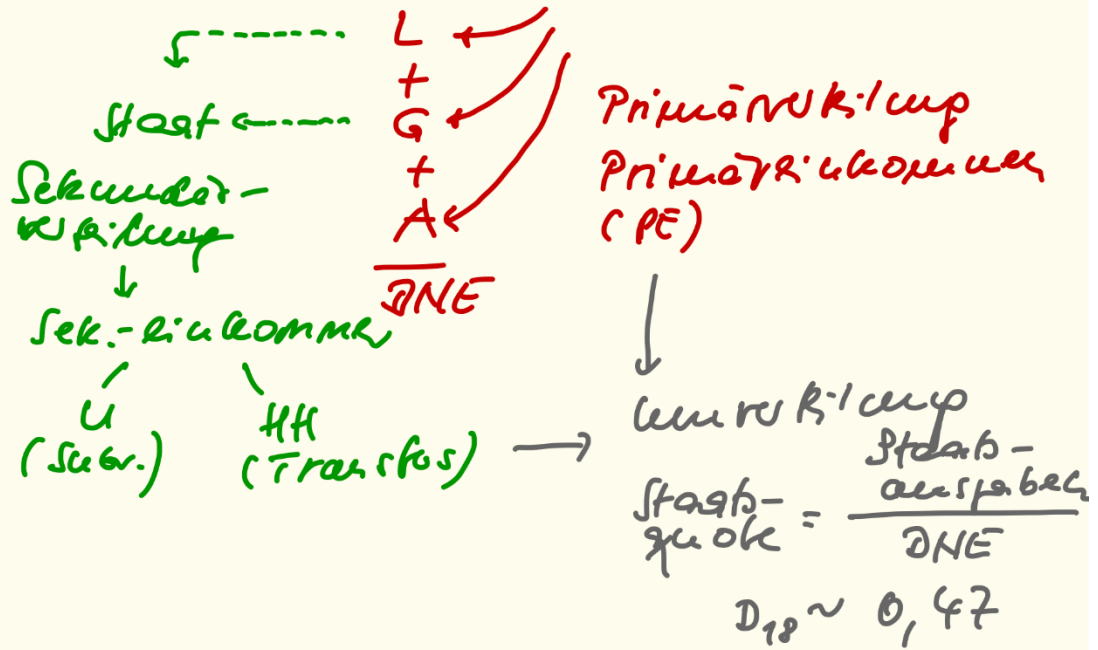 L
+
G
+
A
DNE
Primärverteilung
Primäreinkommen
(PE)
Staat
Sekundär-
verteilung
Sek.-einkommen
U
(Subv.)
HH
(Transfers)
Umverteilung
Staats-
quote
=
Staats-
ausgaben
DNE
D18 ~ 0,47